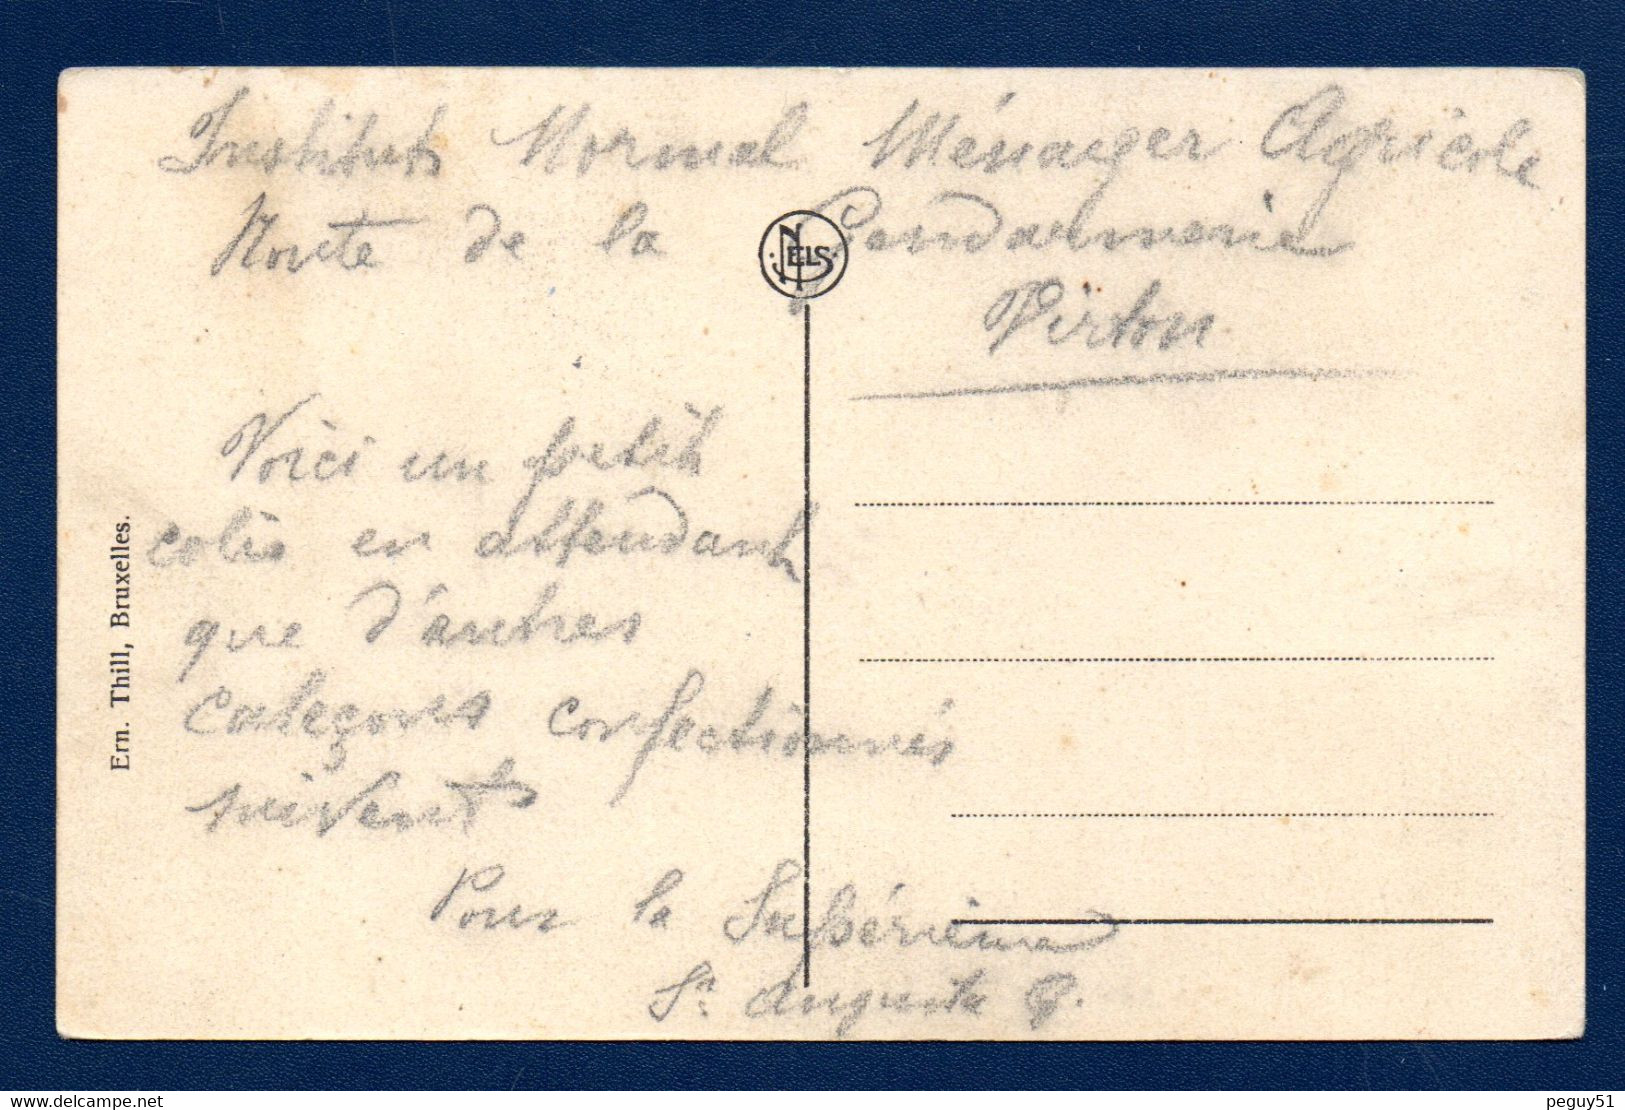 Institut Normal Ménager Agricole
Route de la Gendarmerie
Virton
NELS
Voici un petit
colis en attendant
que d'autres
caleçons confectionnés
suivent
Pour la Supérieure
Sr Auguste P.
Ern. Thill, Bruxelles.
peguy51
www.delcampe.net